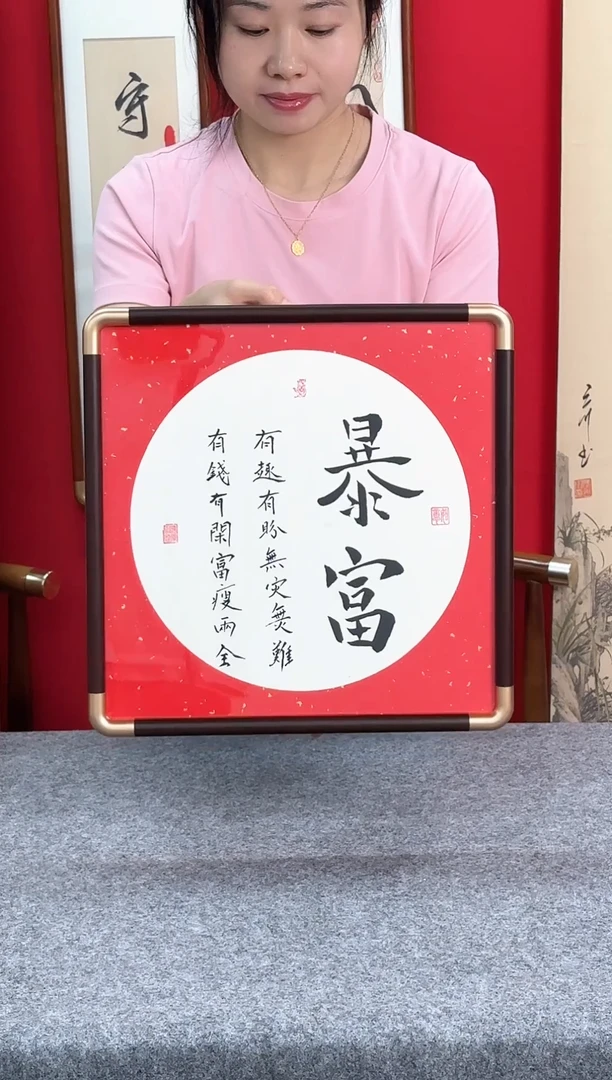 暴富
有趣有盼無灾無難
有錢有閑富瘦兩全
守